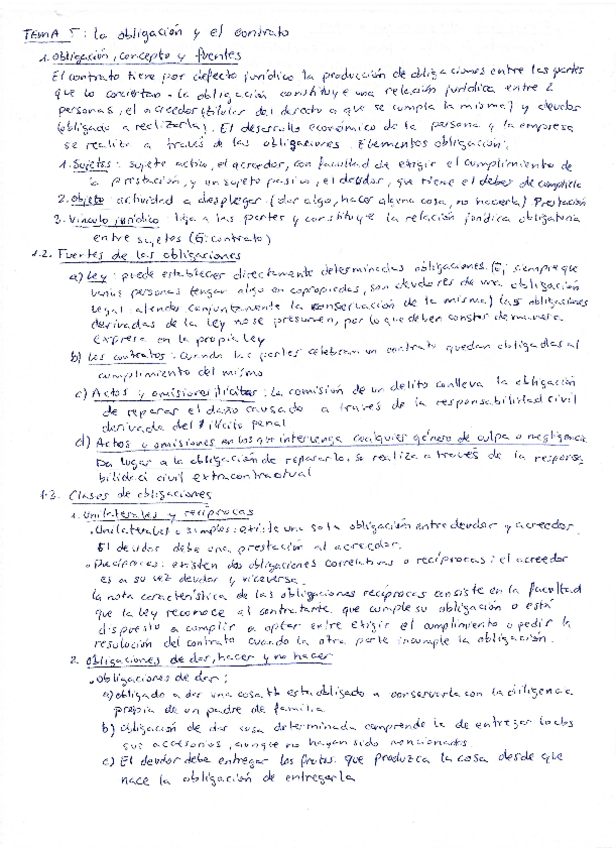 TEMA 5: la obligación y el contrato
1. Obligación, concepto y fuentes
El contrato tiene por defecto jurídico la producción de obligaciones entre las partes
que lo conciertan. La obligación constituye una relación jurídica entre 2
personas, el acreedor (titular del derecho a que se cumpla la misma) y deudor
(obligado a realizarla). El desarrollo económico de la persona y la empresa
se realiza a través de las obligaciones. Elementos obligación:
1. Sujetos: sujeto activo, el acreedor, con facultad de exigir el cumplimiento de
la prestación, y un sujeto pasivo, el deudor, que tiene el deber de cumplirla
2. Objeto actividad a desplegar (dar algo, hacer alguna cosa, no hacerla) Prestación
3. Vínculo jurídico: liga a las partes y constituye la relación jurídica obligatoria
entre sujetos (Ej: contrato)
1.2. Fuentes de las obligaciones
a) Ley: puede establecer directamente determinadas obligaciones. Ej siempre que
varias personas tengan algo en copropiedad, son deudores de una obligación
legal: atender conjuntamente la conservación de la misma) las obligaciones
derivadas de la ley no se presumen, por lo que deben constar de manera
expresa en la propia ley
b) Los contratos: cuando las partes celebran un contrato quedan obligadas al
cumplimiento del mismo
c) Actos y omisiones ilícitas: la comisión de un delito conlleva la obligación
de reparar el daño causado a través de la responsabilidad civil
derivada del ilícito penal
d) Actos u omisiones en los que intervenga cualquier género de culpa o negligencia
Da lugar a la obligación de repararlo. Se realiza a través de la responsa
bilidad civil extracontractual
1.3. Clases de obligaciones
1. Unilaterales y recíprocas
• Unilaterales o simples: existe una sola obligación entre deudor y acreedor.
El deudor debe una prestación al acreedor.
• Recíprocas: existen dos obligaciones correlativas o recíprocas: el acreedor
es a su vez deudor y viceversa.
la nota característica de las obligaciones recíprocas consiste en la facultad
que la ley reconoce al contratante que cumple su obligación o está
dispuesto a cumplir a optar entre exigir el cumplimiento o pedir la
resolución del contrato cuando la otra parte incumple la obligación.
2. Obligaciones de dar, hacer y no hacer
• Obligaciones de dar:
a) obligado a dar una cosa tb esta obligado a conservarla con la diligencia
propia de un padre de familia.
b) Obligación de dar cosa determinada comprende la de entregar todos
sus accesorios, aunque no hayan sido mencionados.
c) El deudor debe entregar los frutos que produzca la cosa desde que
nace la obligación de entregarla